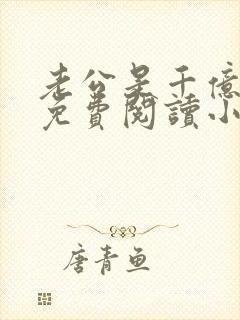 老公是千億
免費閱讀小
唐青鱼